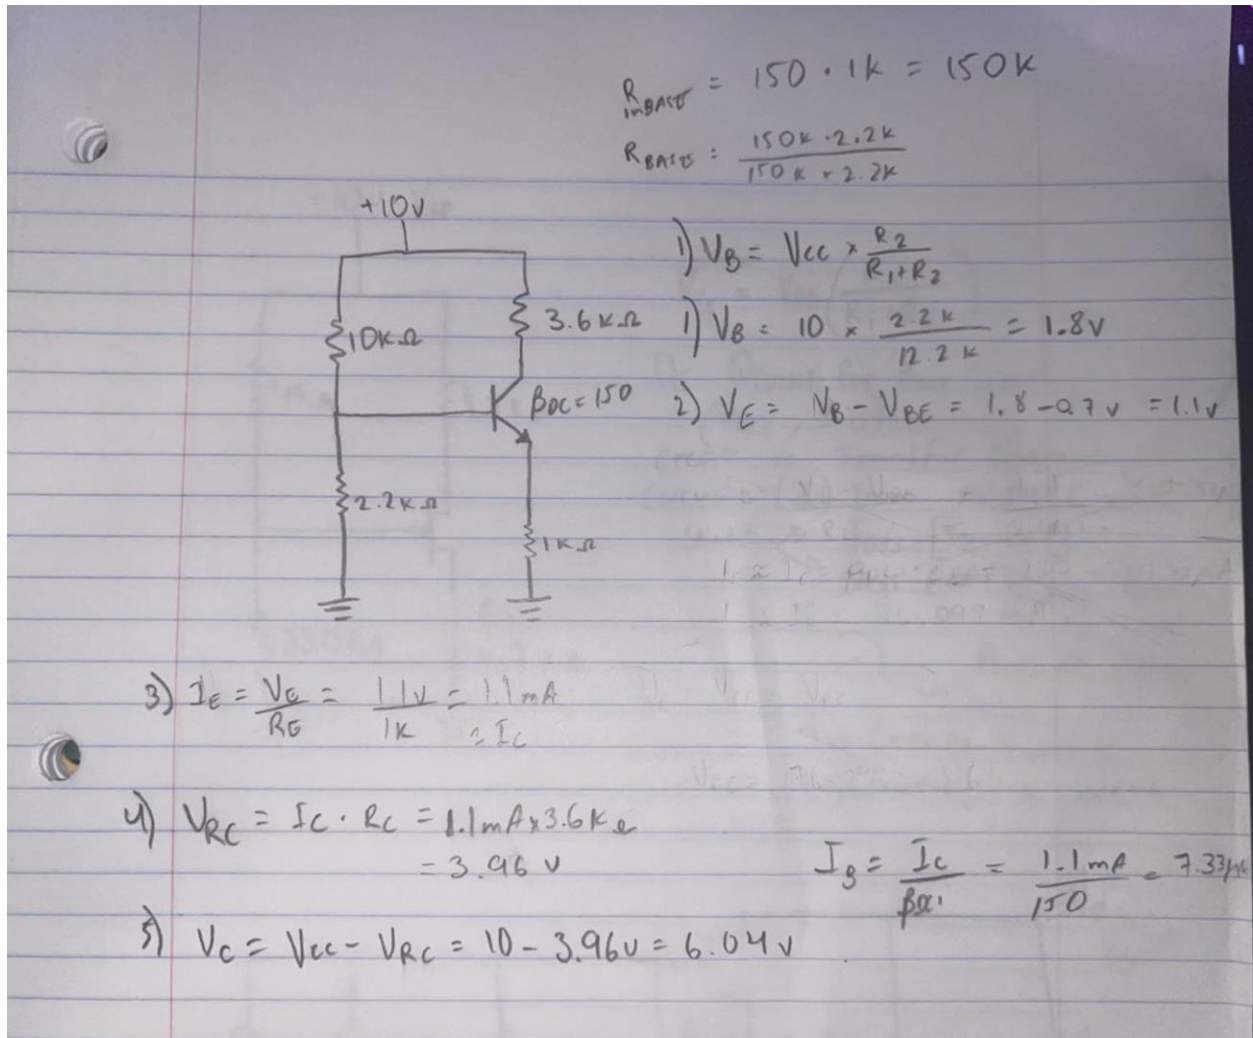 R_inBASE = 150 · 1K = 150K
R_BASE = (150K · 2.2K) / (150K + 2.2K)
+10V
10KΩ
3.6KΩ
βDC = 150
2.2KΩ
1KΩ
1) V_B = Vcc × R2 / (R1 + R2)
1) V_B = 10 × 2.2K / 12.2K = 1.8V
2) V_E = V_B - V_BE = 1.8 - 0.7V = 1.1V
3) I_E = V_E / R_E = 1.1V / 1K = 1.1mA
≈ Ic
4) V_RC = Ic · Rc = 1.1mA × 3.6KΩ
= 3.96V
I_B = Ic / βDC = 1.1mA / 150 = 7.33μA
5) Vc = Vcc - V_RC = 10 - 3.96V = 6.04V